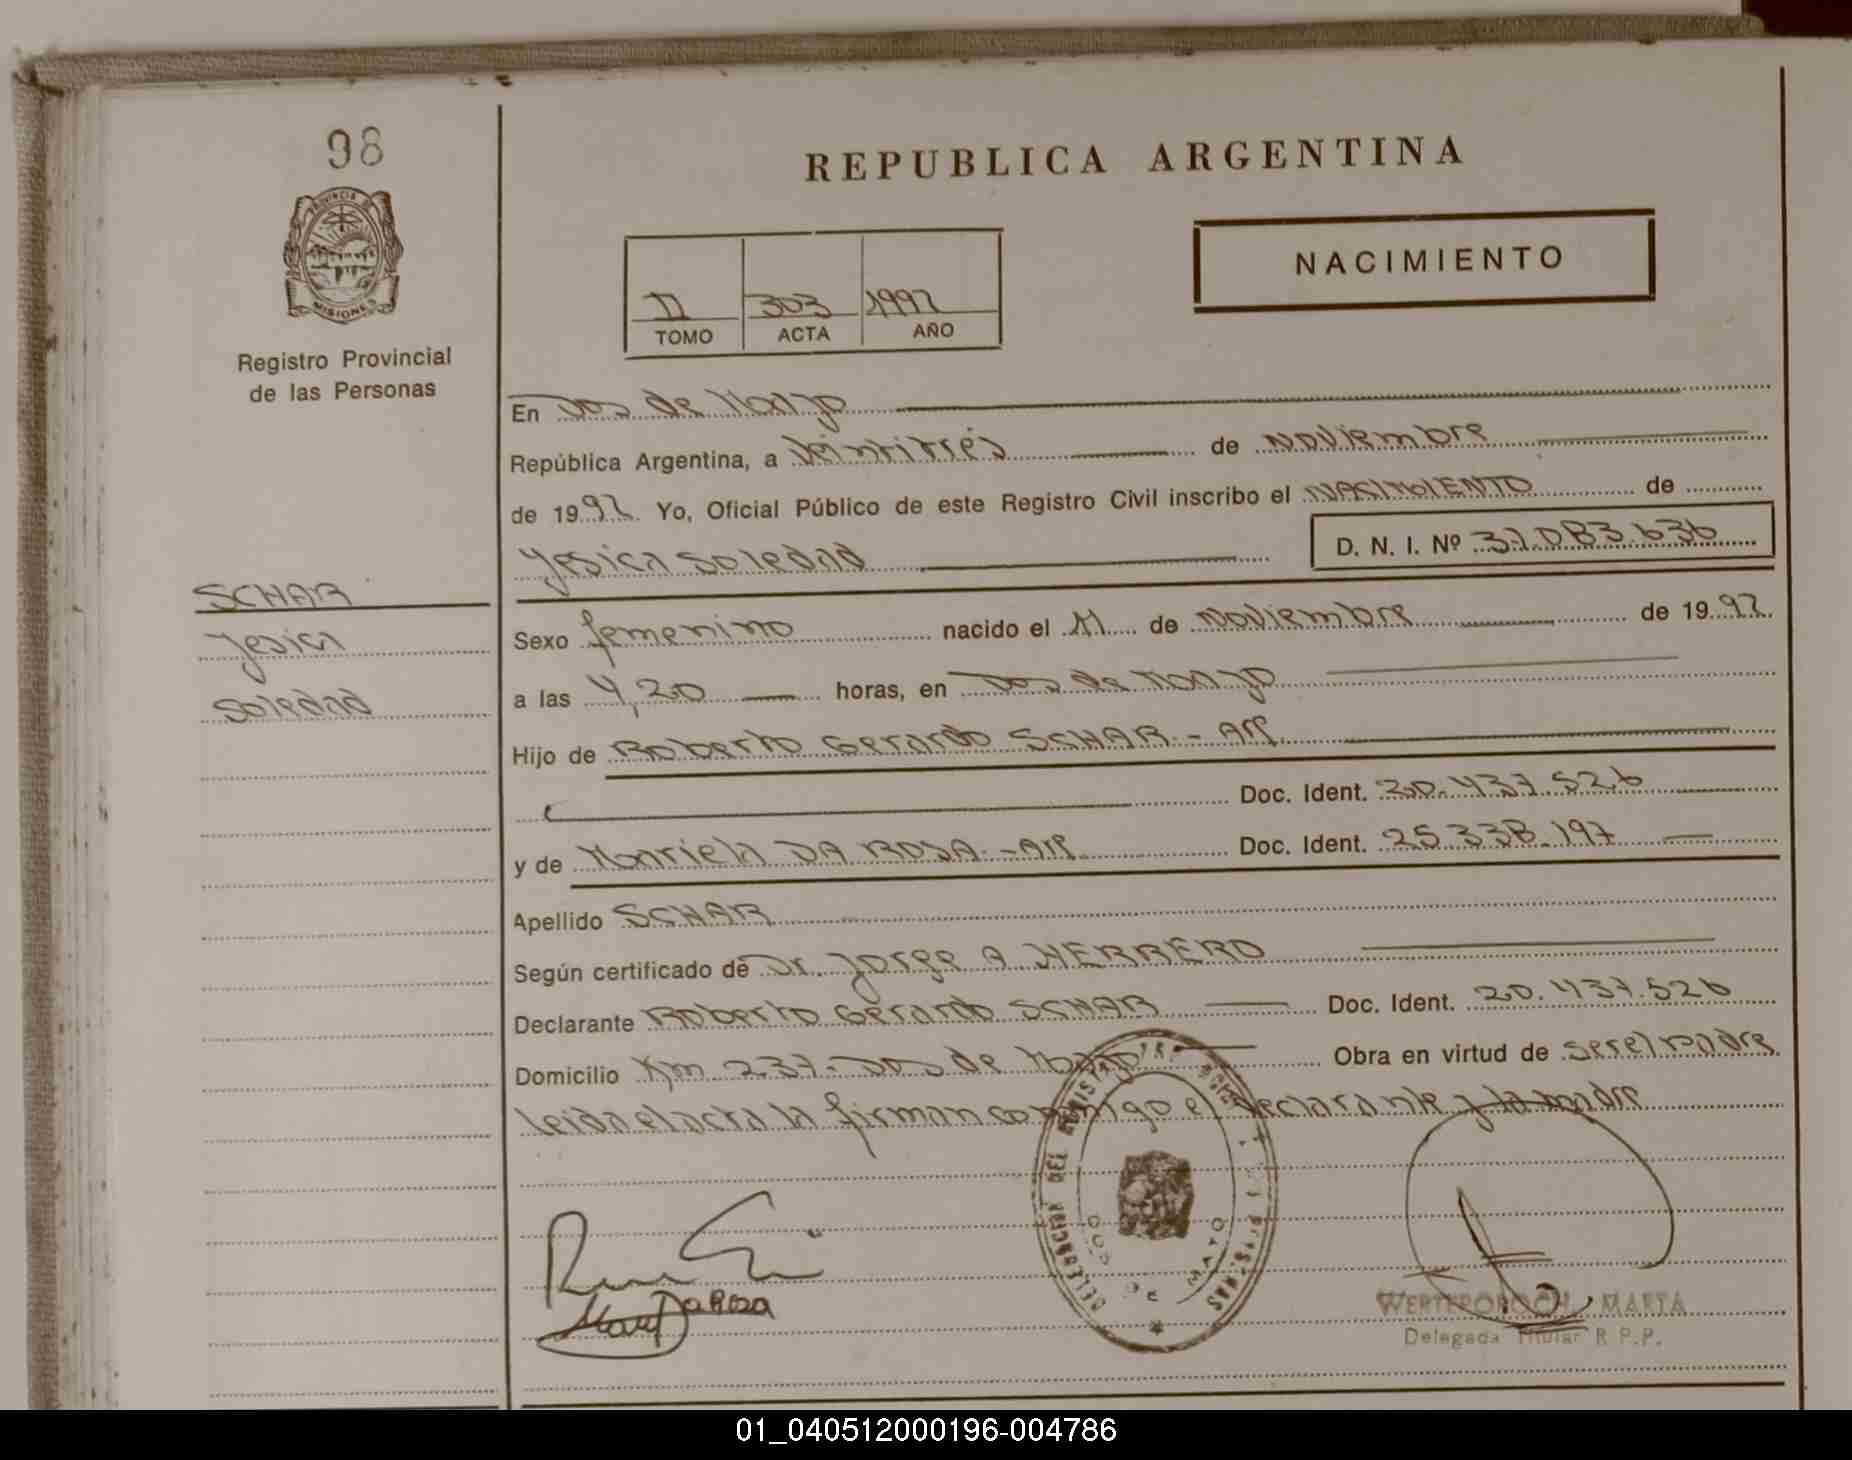 98
REPUBLICA ARGENTINA
PROVINCIA DE
MISIONES
Registro Provincial
de las Personas
II 303 1992
TOMO ACTA AÑO
NACIMIENTO
En Dos de Mayo
República Argentina, a Veintitrés de Noviembre
de 1992 Yo, Oficial Público de este Registro Civil inscribo el NACIMIENTO de
Yesica Soledad D. N. I. Nº 37.083.636
SCHAR
Yesica
Soledad
Sexo femenino nacido el 11 de Noviembre de 1992
a las 4,20 horas, en Dos de Mayo
Hijo de Roberto Gerardo SCHAR - Arg.
Doc. Ident. 20.437.526
y de Mariela DA ROSA - Arg. Doc. Ident. 25.338.197
Apellido SCHAR
Según certificado de Dr. Jorge A HERRERO
Declarante Roberto Gerardo SCHAR Doc. Ident. 20.437.526
Domicilio Km 237. Dos de Mayo Obra en virtud de ser el padre
leida el acta la firman conmigo el declarante y la madre
DELEGACION DEL REGISTRO
DOS DE MAYO
Da Rosa
MARTA
Delegada Titular R.P.P.
01_040512000196-004786